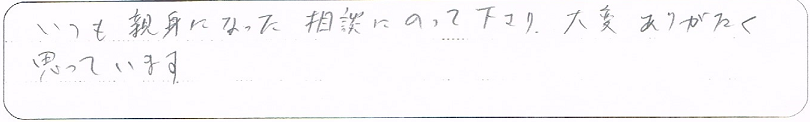 いつも親身になった相談にのって下さり、大変ありがたく
思っています